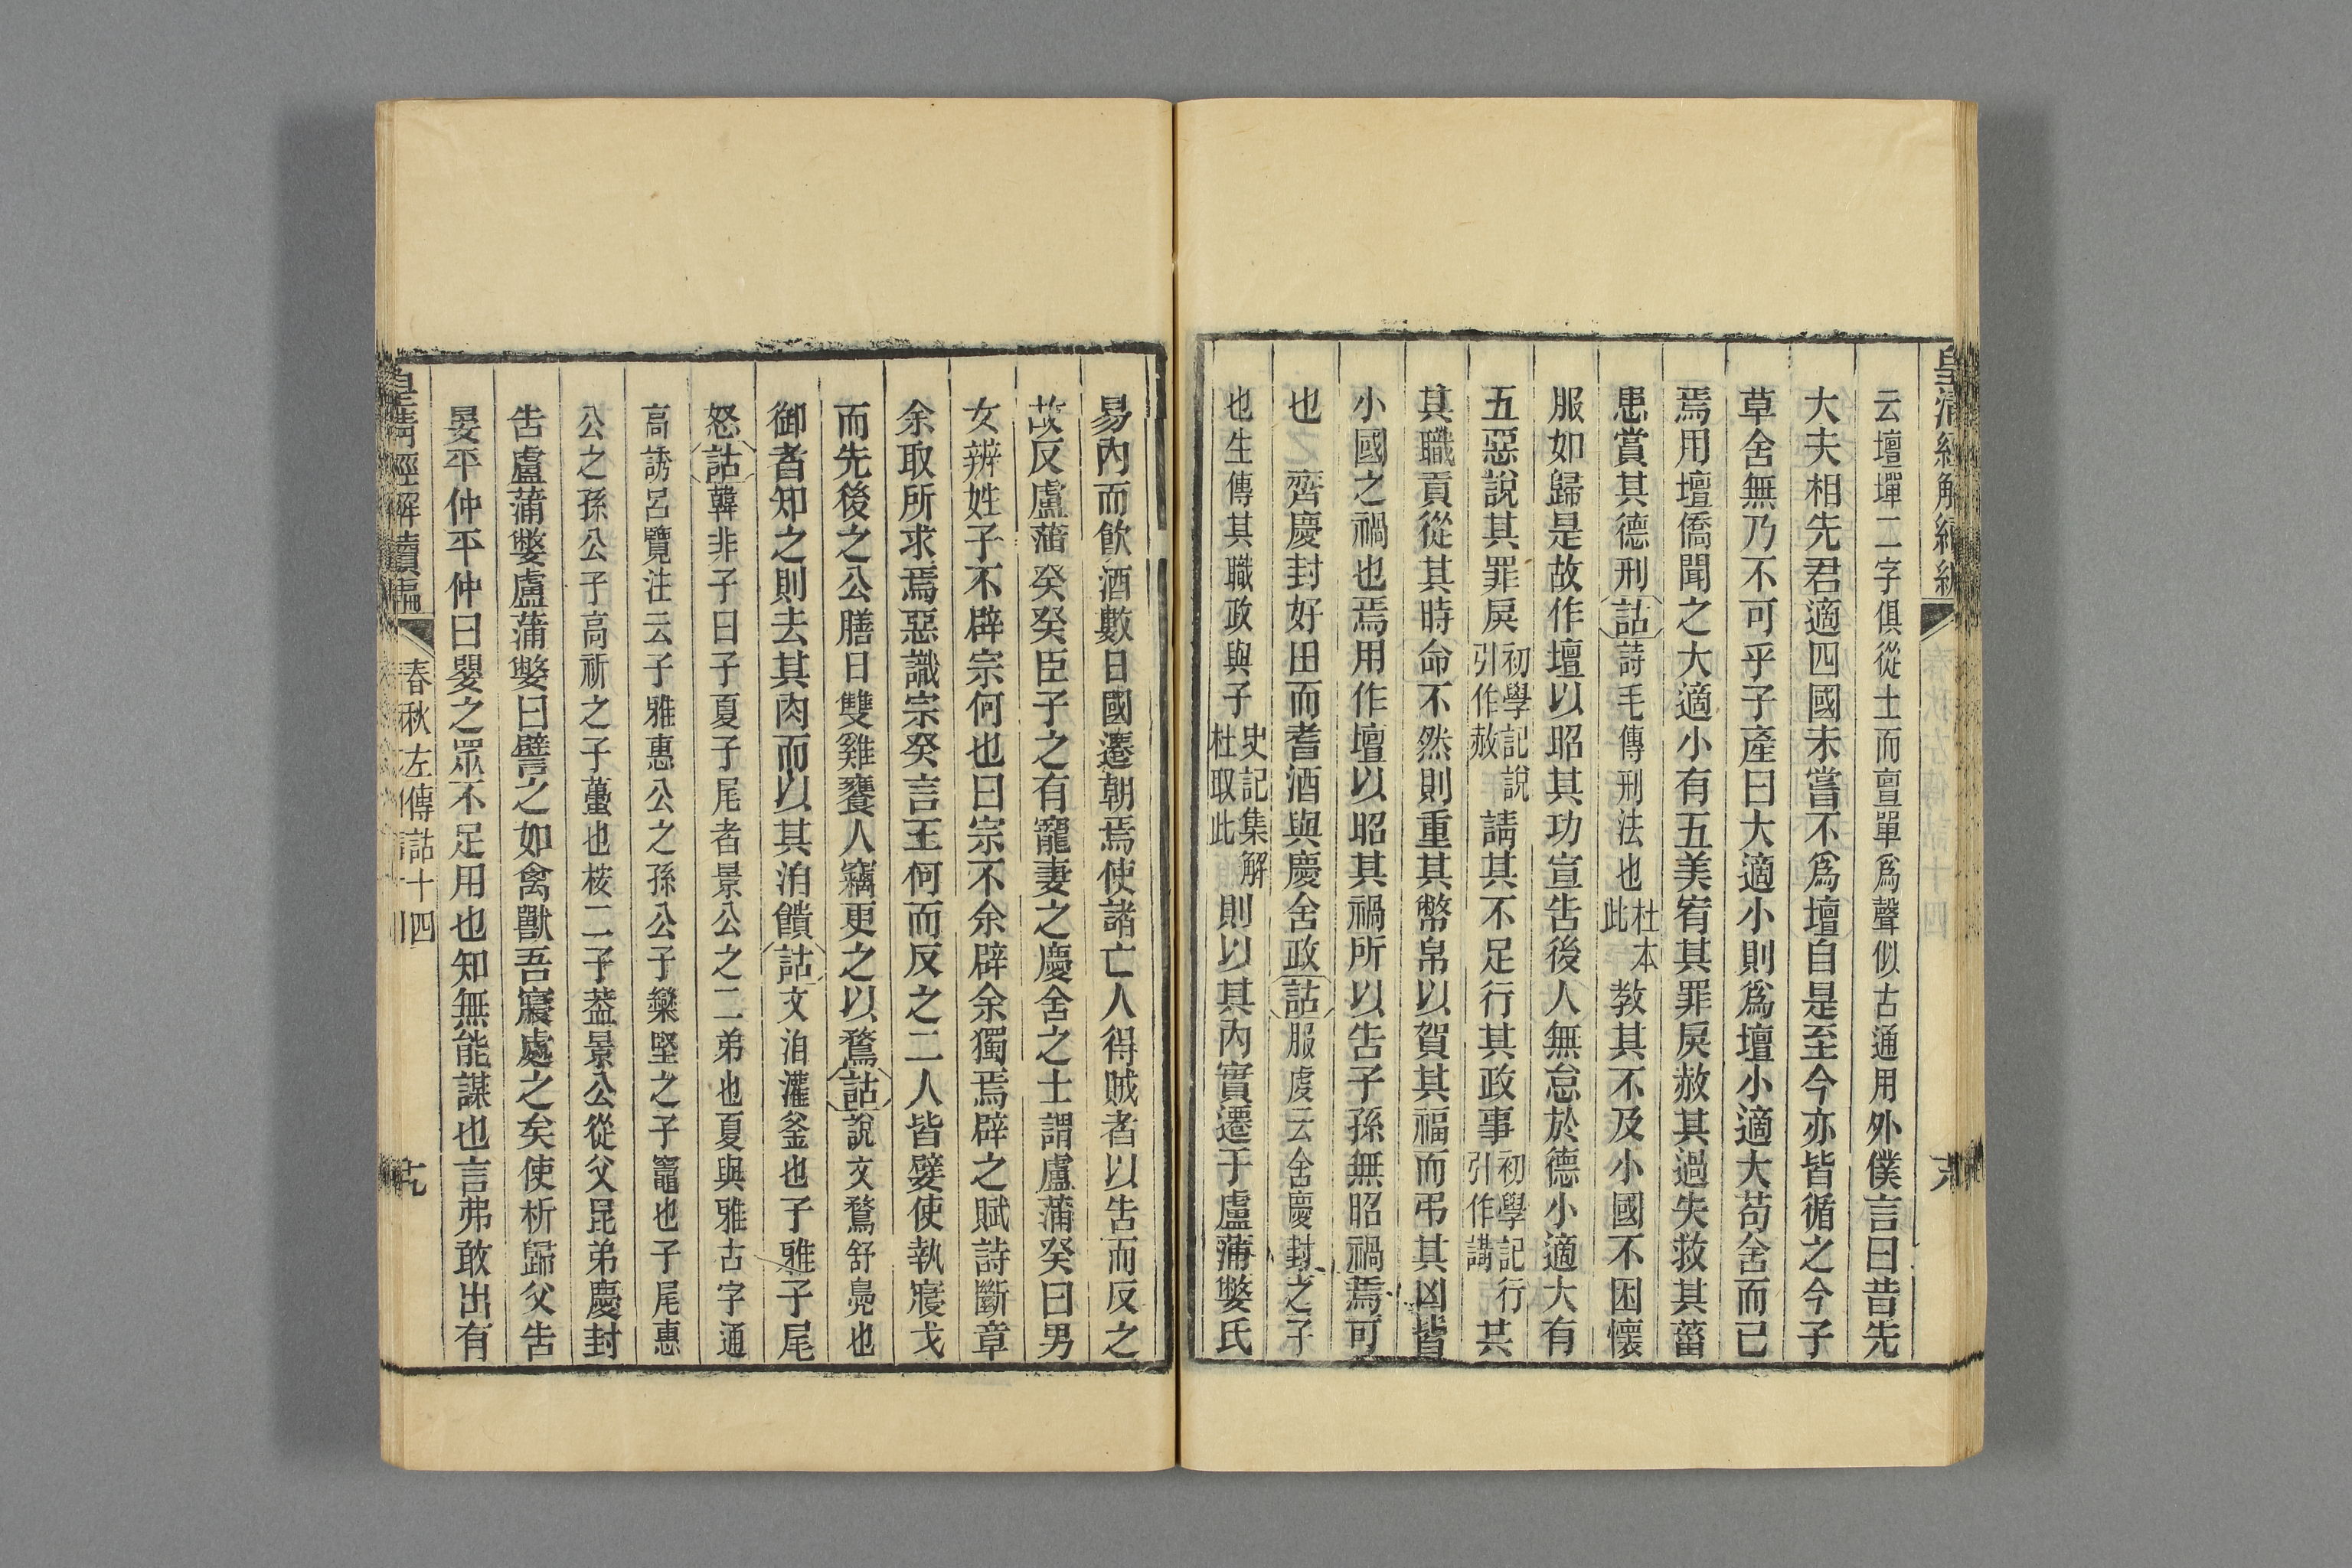 皇清經解續編
云壇墠二字俱從土而亶單爲聲似古通用外僕言曰昔先
大夫相先君適四國未嘗不爲壇自是至今亦皆循之今子
草舍無乃不可乎子產曰大適小則爲壇小適大苟舍而已
焉用壇僑聞之大適小有五美宥其罪戾赦其過失救其菑
患賞其德刑詁詩毛傳刑法也杜本此教其不及小國不困懷
服如歸是故作壇以昭其功宣告後人無怠於德小適大有
五惡說其罪戾初學記說引作赦請其不足行其政事初學記行引作講共
其職貢從其時命不然則重其幣帛以賀其福而弔其凶皆
小國之禍也焉用作壇以昭其禍所以告子孫無昭禍焉可
也　齊慶封好田而耆酒與慶舍政詁服虔云舍慶封之子
也生傳其職政與子史記集解杜取此則以其內實遷于盧蒲嫳氏
易內而飲酒數日國遷朝焉使諸亡人得賊者以告而反之
故反盧蒲癸癸臣子之有寵妻之慶舍之士謂盧蒲癸曰男
女辨姓子不辟宗何也曰宗不余辟余獨焉辟之賦詩斷章
余取所求焉惡識宗癸言王何而反之二人皆嬖使執寢戈
而先後之公膳日雙雞饔人竊更之以鶩詁說文鶩舒鳧也
御者知之則去其肉而以其洎饋詁文洎灌釜也子雅子尾
怒詁韓非子曰子夏子尾者景公之二弟也夏與雅古字通
高誘呂覽注云子雅惠公之孫公子欒堅之子竈也子尾惠
公之孫公子高祈之子蠆也桉二子葢景公從父昆弟慶封
告盧蒲嫳盧蒲嫳曰譬之如禽獸吾寢處之矣使析歸父告
晏平仲平仲曰嬰之眾不足用也知無能謀也言弗敢出有
皇清經解續編　春秋左傳詁十四